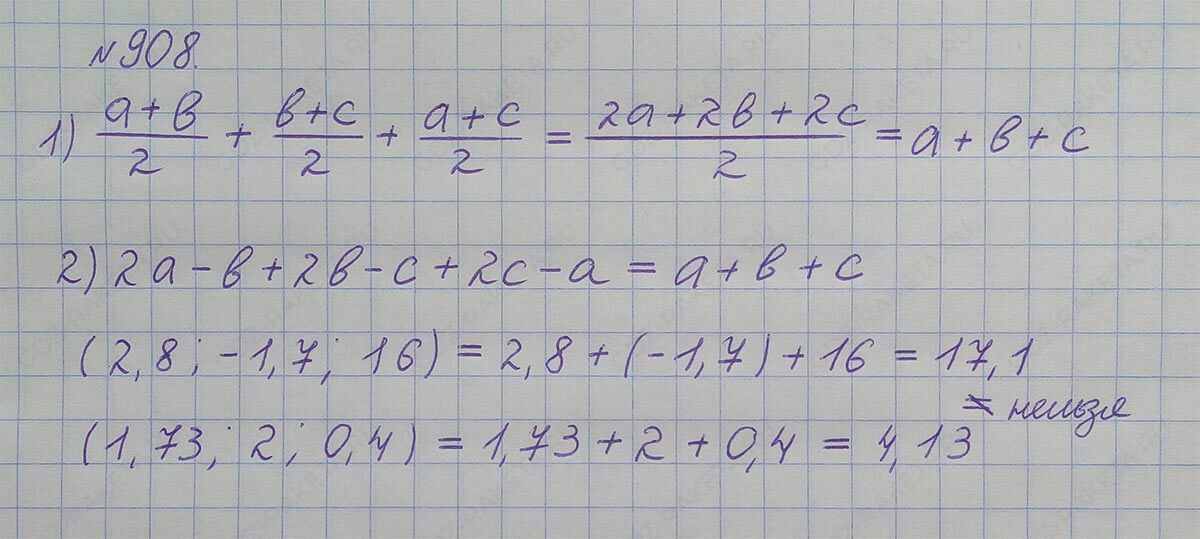 №908.
1) (a+b)/2 + (b+c)/2 + (a+c)/2 = (2a+2b+2c)/2 = a+b+c
2) 2a-b+2b-c+2c-a=a+b+c
(2,8; -1,7; 16) = 2,8+(-1,7)+16 = 17,1
= нельзя
(1,73; 2; 0,4) = 1,73+2+0,4 = 4,13